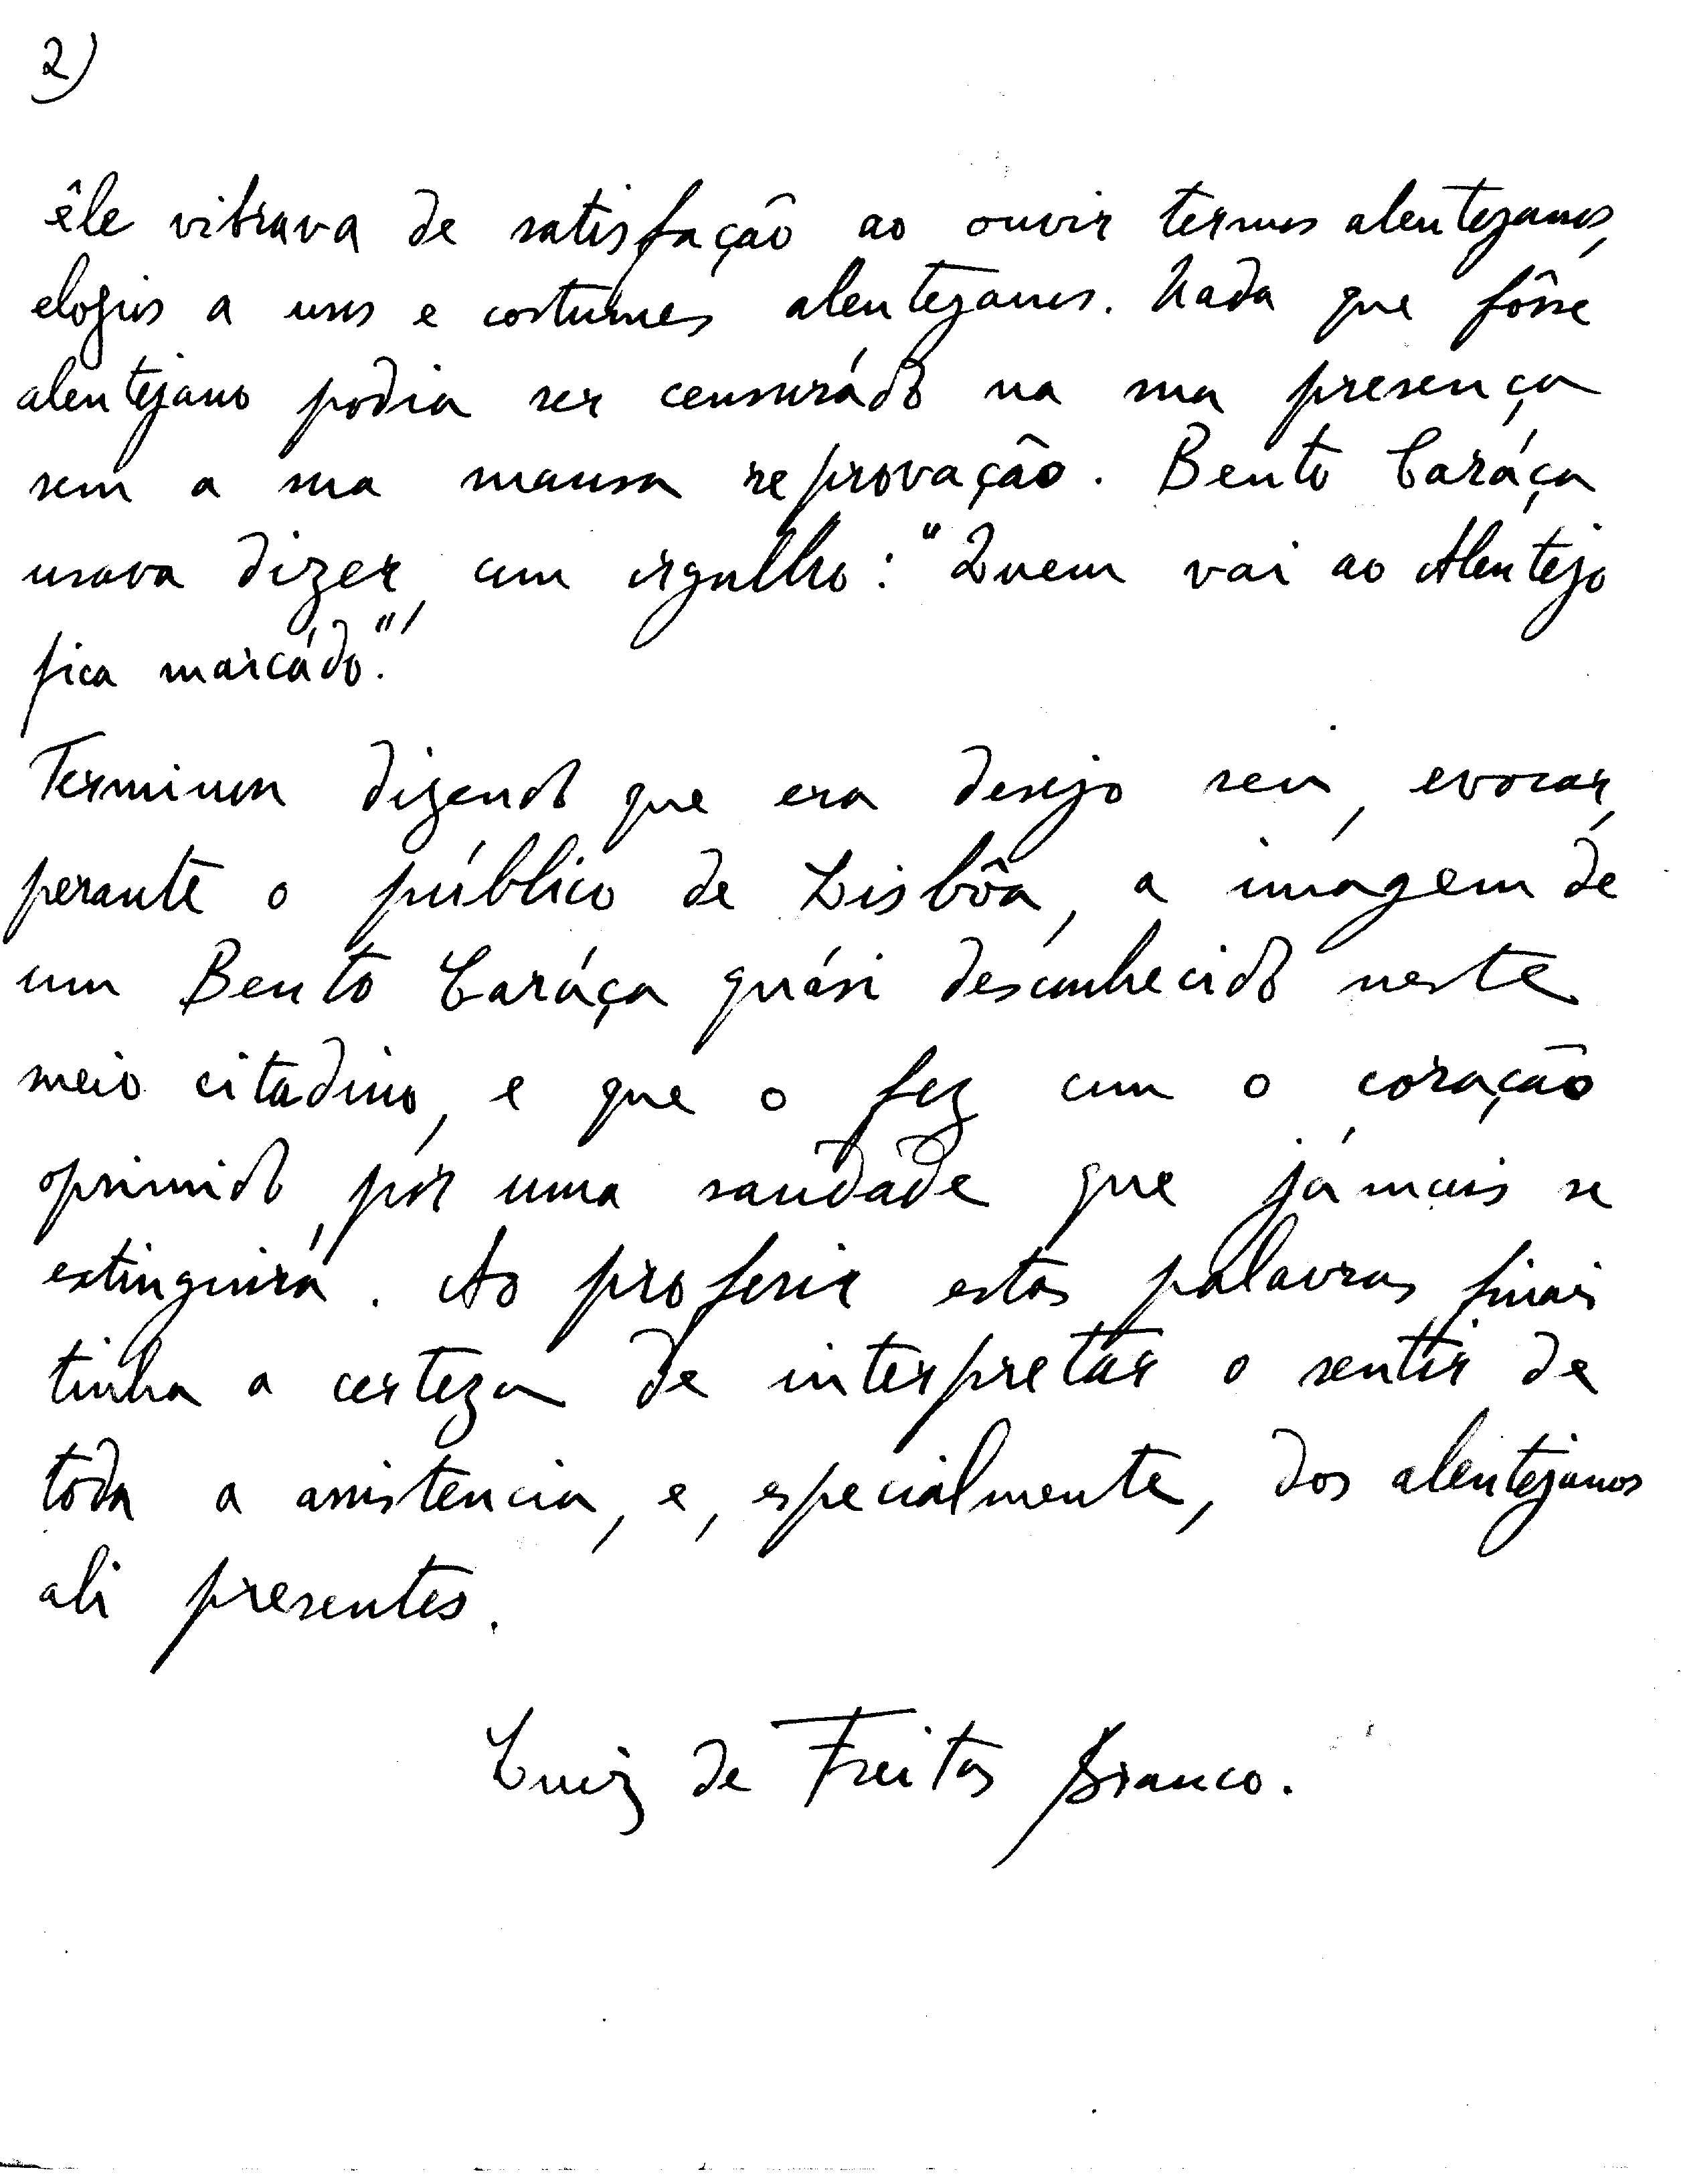 2)
êle vibrava de satisfação ao ouvir termos alentejanos,
elogios a usos e costumes alentejanos. Nada que fôsse
alentejano podia ser censurádo na sua presença
sem a sua mansa reprovação. Bento Caráça
usava dizer, com orgulho: "Quem vai ao Alentejo
fica marcádo."
Terminou dizendo que era desejo seu, evocar,
perante o público de Lisbôa, a imagem de
um Bento Caráça quási desconhecido neste
meio citadino, e que o fez com o coração
oprimido, por uma saudade que jámais se
extinguirá. Ao proferir estas palavras finais
tinha a certeza de interpretar o sentir de
toda a assistencia, e, especialmente, dos alentejanos
ali presentes.
Luiz de Freitas Branco.